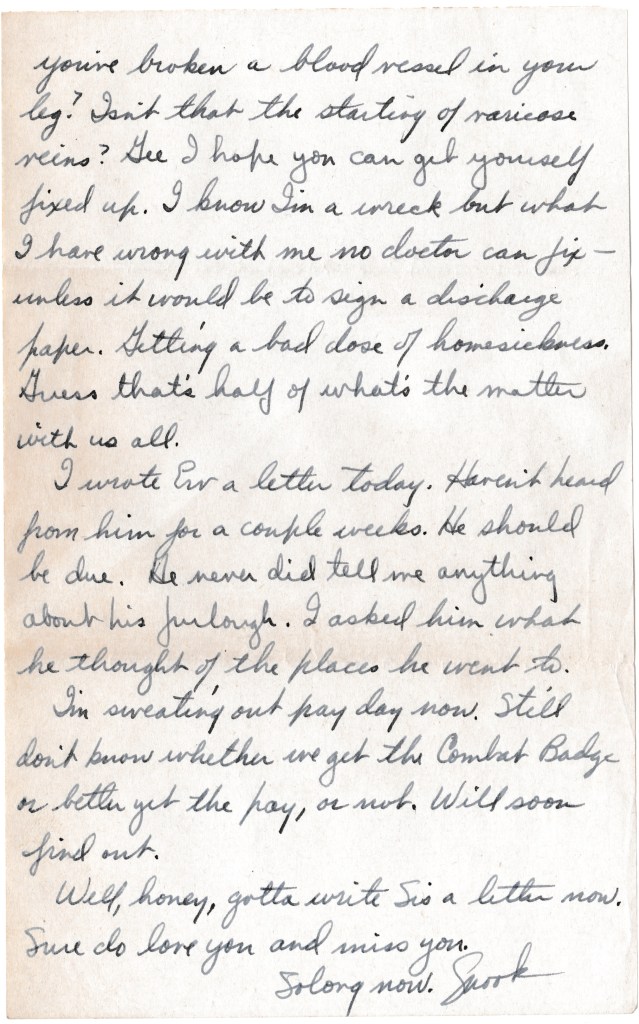 you've broken a blood vessel in your
leg? Isn't that the starting of varicose
veins? Gee I hope you can get yourself
fixed up. I know I'm a wreck but what
I have wrong with me no doctor can fix –
unless it would be to sign a discharge
paper. Getting a bad dose of homesickness.
Guess that's half of what's the matter
with us all.
I wrote Erv a letter today. Haven't heard
from him for a couple weeks. He should
be due. He never did tell me anything
about his furlough. I asked him what
he thought of the places he went to.
I'm sweating out pay day now. Still
don't know whether we get the Combat Badge
or better yet the pay, or not. Will soon
find out.
Well, honey, gotta write Sis a letter now.
Sure do love you and miss you.
Solong now. Snook